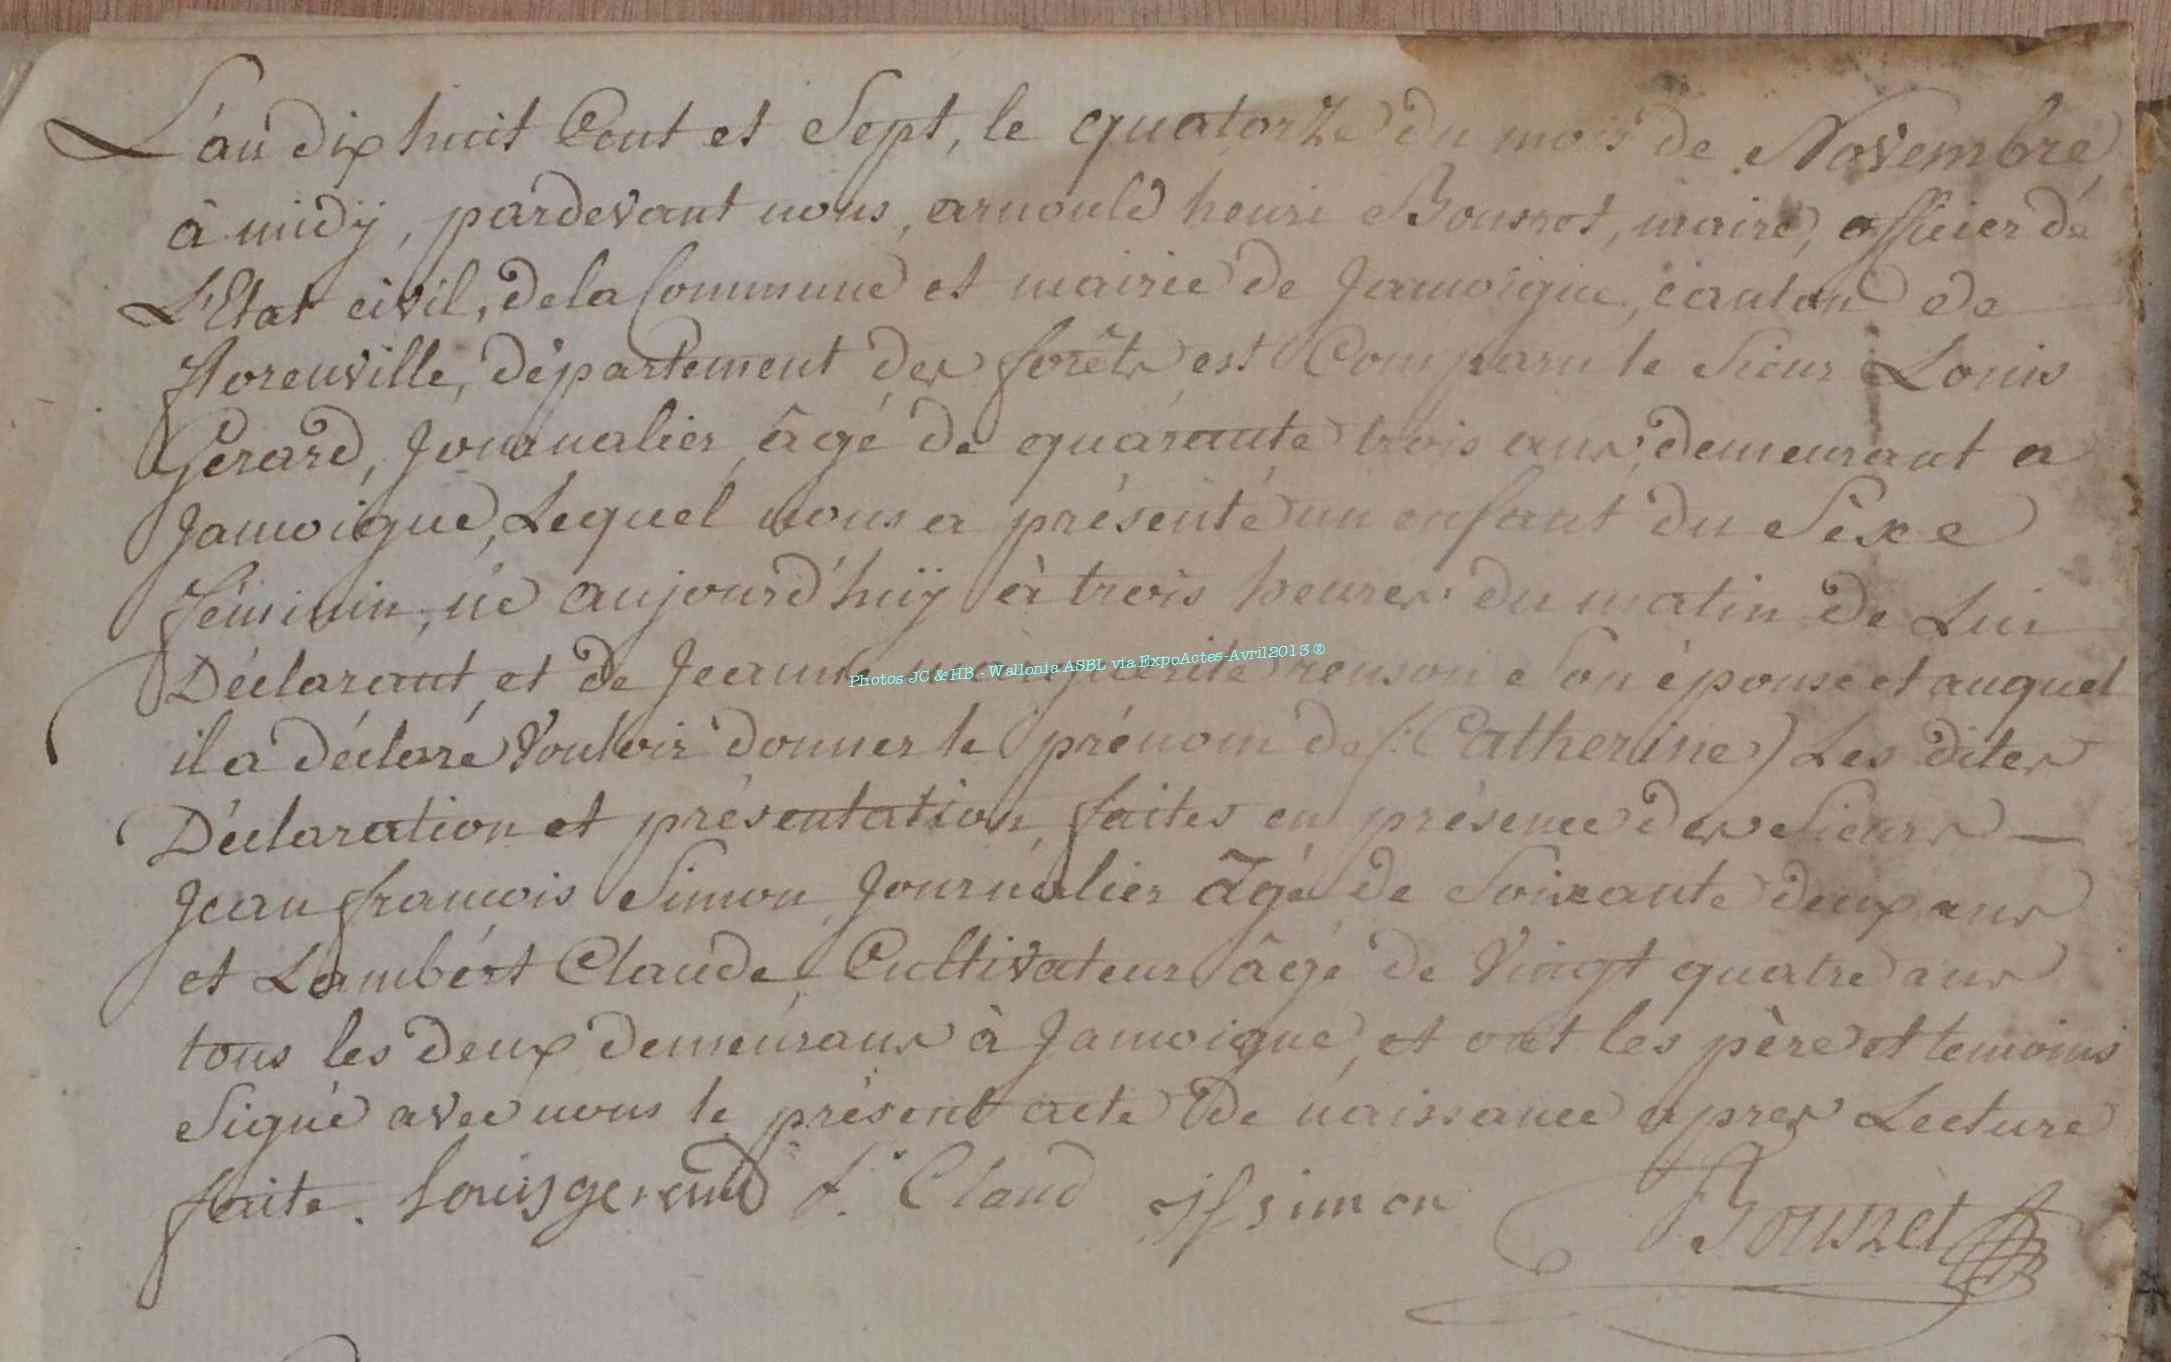 L'an dix huit Cent et Sept, le quatorze du mois de Novembre
à midÿ, pardevant nous, arnould henri Bousret, maire, officier de
L'Etat civil, de la Commune et mairie de Jamoigne, canton de
florenville, département des forêts est Comparu le Sieur Louis
Gerard, Journalier, âgé de quarante trois ans, demeurant a
Jamoigne, Lequel nous a présenté un enfant du Sèxe
féminin, né aujourd'hüÿ à trois heures du matin de Lui
Déclarant, et de Jeanne renson Son épouse et auquel
Photos JC & HB - Wallonia ASBL via ExpoActes-Avril2013 ®
il a déclaré Vouloir donner le prénom de (Catherine) Les dites
Déclaration et présentation, faites en présence des Sieurs —
Jean francois Simon, Journalier âgé de Soixante deux ans
et Lambért Claude, Cultivateur âgé de Vingt quatre ans
tous les deux demeurans à Jamoigne, et ont les père et temoins
Signé avec nous le présent acte de naissance apres Lecture
faite. louis gerard Claud jf simon Bousret